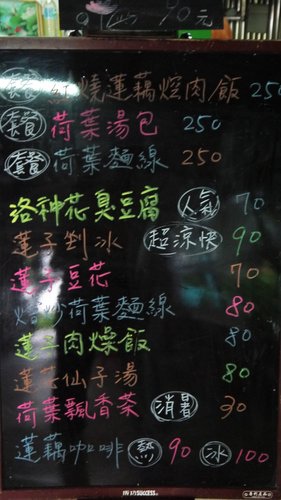 90元
套餐 紅燒蓮藕焢肉飯 250
套餐 荷葉湯包 250
套餐 荷葉麵線 250
洛神花臭豆腐 人氣 70
蓮子剉冰 超涼快 90
蓮子豆花 70
焙炒荷葉麵線 80
蓮子肉燥飯 80
蓮花仙子湯 80
荷葉飄香茶 消暑 30
蓮藕咖啡 熱 90 冰 100
SUCCESS